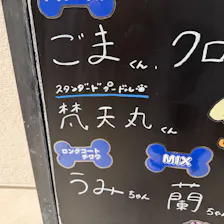 ごまくん クロ
スタンダードプードル
梵天丸くん
ロングコート
チワワ
MIX
うみちゃん
蘭ちゃん